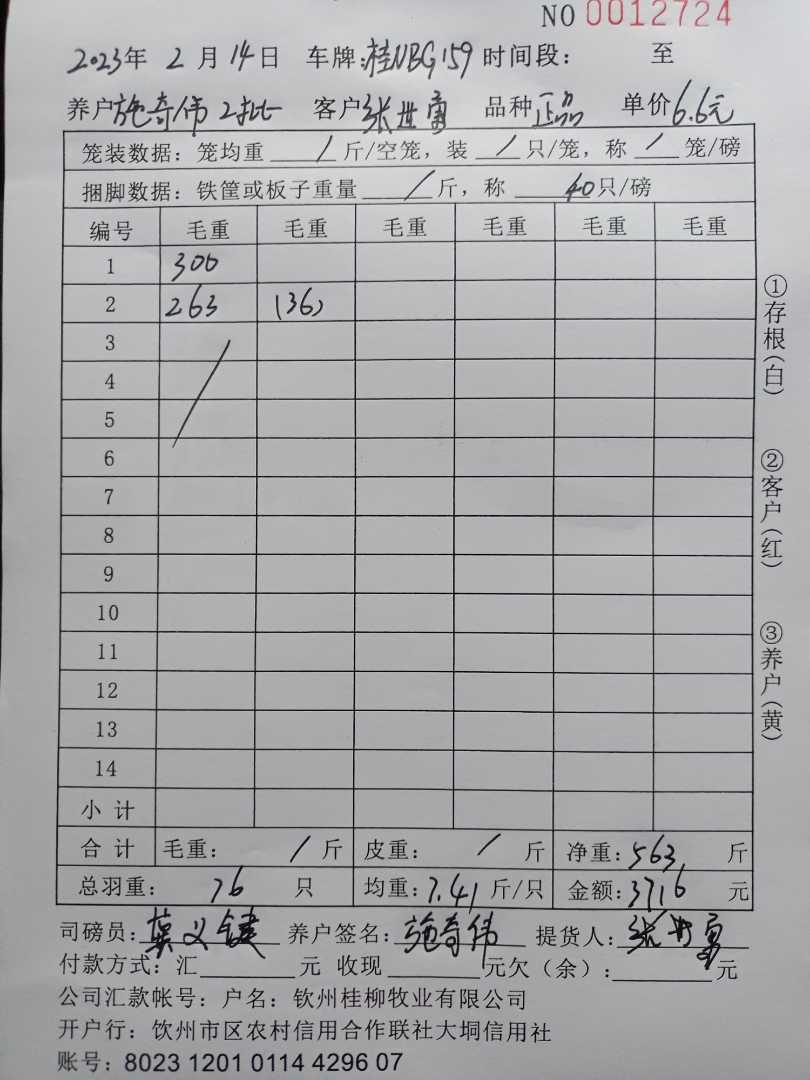 NO 0012724
2023年 2月14日 车牌:桂NBG159 时间段: 至
养户施奇伟2批 客户张世富 品种正品 单价6.6元
笼装数据:笼均重 / 斤/空笼,装 / 只/笼,称 / 笼/磅
捆脚数据:铁筐或板子重量 / 斤,称 40只/磅
编号 毛重 毛重 毛重 毛重 毛重 毛重
1 300
2 263 (36)
3
4
5
6
7
8
9
10
11
12
13
14
小计
合计 毛重: / 斤 皮重: / 斤 净重:563 斤
总羽重: 76 只 均重:7.41斤/只 金额:3716 元
司磅员:莫义键 养户签名:施奇伟 提货人:张世富
付款方式:汇 元 收现 元欠(余): 元
公司汇款帐号:户名:钦州桂柳牧业有限公司
开户行:钦州市区农村信用合作联社大垌信用社
账号:8023 1201 0114 4296 07
①存根(白)
②客户(红)
③养户(黄)